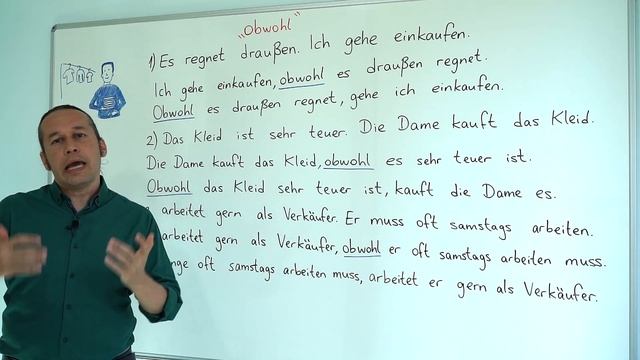 "Obwohl"
1) Es regnet draußen. Ich gehe einkaufen.
Ich gehe einkaufen, obwohl es draußen regnet.
Obwohl es draußen regnet, gehe ich einkaufen.
2) Das Kleid ist sehr teuer. Die Dame kauft das Kleid.
Die Dame kauft das Kleid, obwohl es sehr teuer ist.
Obwohl das Kleid sehr teuer ist, kauft die Dame es.
arbeitet gern als Verkäufer. Er muss oft samstags arbeiten.
arbeitet gern als Verkäufer, obwohl er oft samstags arbeiten muss.
oft samstags arbeiten muss, arbeitet er gern als Verkäufer.